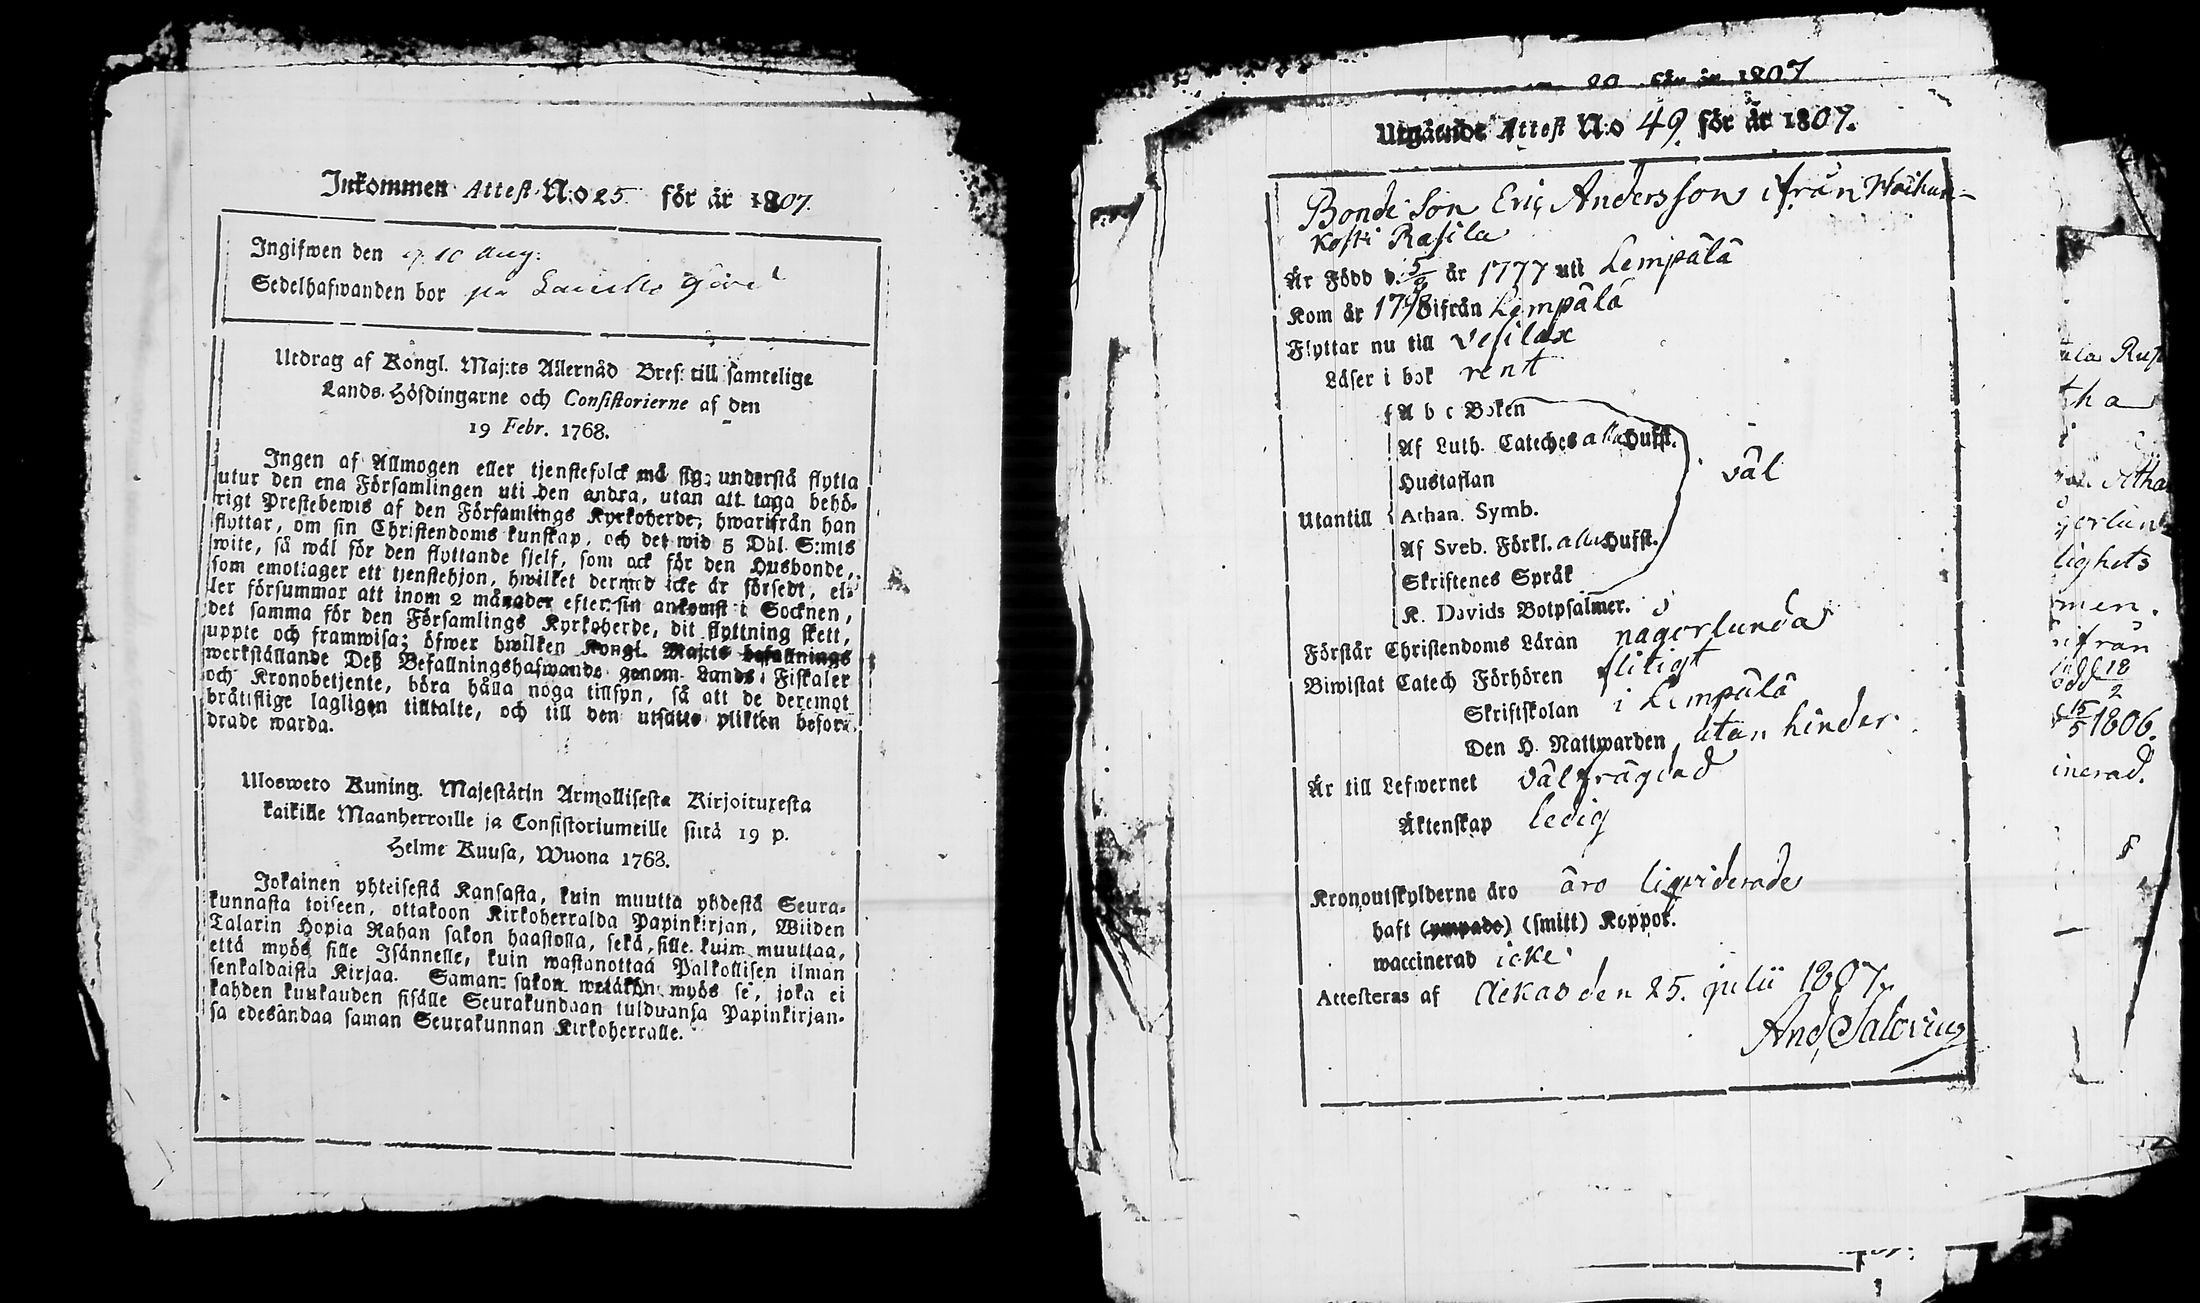 Inkommen Attest N:o 25 för år 1807.
Ingifwen den 10 Aug:
Sedelhafwanden bor på Gård
Utdrag af Kongl. Maj:ts Allernåd Bref: till samtelige
Lands-Höfdingarne och Consistorierne af den
19 Febr. 1768.
Ingen af Allmogen eller tjenstefolck må sig understå flytta
utur den ena Församlingen uti den andra, utan att taga behö-
rigt Prestebewis af den Församlings Kyrkoherde, hwarifrån han
flyttar, om sin Christendoms kunskap, och det wid 5 Dal. S:mts
wite, så wäl för den flyttande sjelf, som ock för den Husbonde,
som emottager ett tjenstehjon, hwilket dermed icke är försedt, el-
ler försummar att inom 2 månader efter sin ankomst i Socknen,
det samma för den Församlings Kyrkoherde, dit flyttning skett,
uppte och framwisa; öfwer hwilken Kongl. Maj:ts befallnings
werkställande Deß Befallningshafwande genom Lands-Fiskaler
och Kronobetjente, böra hålla noga tillsyn, så att de deremot
brätsflige lagligen tilltalte, och till den utsatte plikten befor-
drade warda.
Ulosweto Kuning. Majestätin Armollisesta Kirjoituxesta
kaikille Maanherroille ja Consistoriumeille siitä 19 p.
Helme Kuusa, Wuona 1768.
Jokainen yhteisestä Kansasta, kuin muutta yhdestä Seura-
kunnasta toiseen, ottakoon Kirkoherralda Papinkirjan, Wiiden
Talarin Hopia Rahan sakon haastolla, sekä sille kuin muuttaa,
että myös sille Isännelle, kuin wastanottaa Palkollisen ilman
senkaldaista Kirjaa. Saman sakon wetäkön myös se, joka ei
kahden kuukauden sisälle Seurakundaan tulduansa Papinkirjan-
sa edesandaa saman Seurakunnan Kirkoherralle.
för år 1807
Utgående Attest N:o 49 för år 1807.
Bonde Son Eric Andersson ifrån Waihan-
kosti Rasila
Är Född d. 5/9 år 1777 uti Lempälä
Kom år 1798 ifrån Lempälä
Flyttar nu till Vesilax
Läser i bok rent
A b c Boken
Af Luth. Cateches alla Hufst.
Hustaflan väl
Utantill Athan. Symb.
Af Sveb. Förkl. alla Hufst.
Skriftenes Språk
K. Davids Botpsalmer.
Förstår Christendoms Läran någorlunda
Biwistat Catech Förhören flitigt
Skriftskolan i Lempälä
Den H. Nattwarden utan hinder.
Är till Lefwernet välfrägdad
Äktenskap ledig
Kronoutskylderne äro äro liqviderade
haft (ympade) (smitt) Koppor.
waccinerad icke
Attesteras af Ackas den 25. julii 1807.
And. Salovius
tha
lighets
men.
ifrån
18/2
15/5 1806.
inerad.